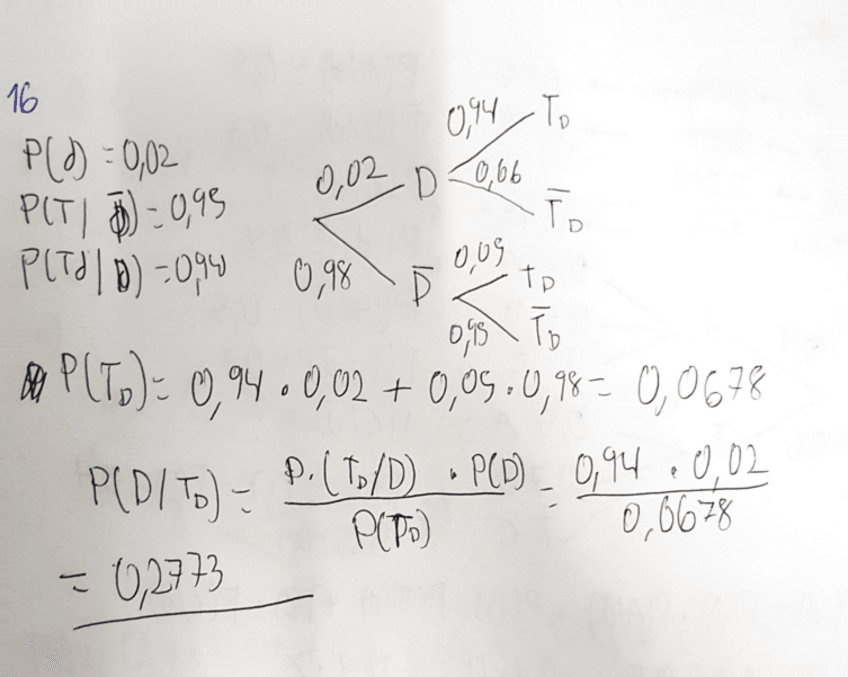 16
P(d) = 0,02
P(T| D̅) = 0,95
P(Td|D) = 0,94
0,02 D 0,94 T_D
0,06 T̅_D
0,98 D̅ 0,05 t_D
0,95 T̅_D
P(T_D) = 0,94 · 0,02 + 0,05 · 0,98 = 0,0678
P(D/T_D) = P·(T_D/D) · P(D) / P(T_D) = 0,94 · 0,02 / 0,0678
= 0,2773